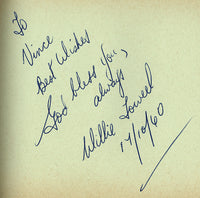 To
Vince
Best Wishes
God bless you,
always
Willie
17/10/60